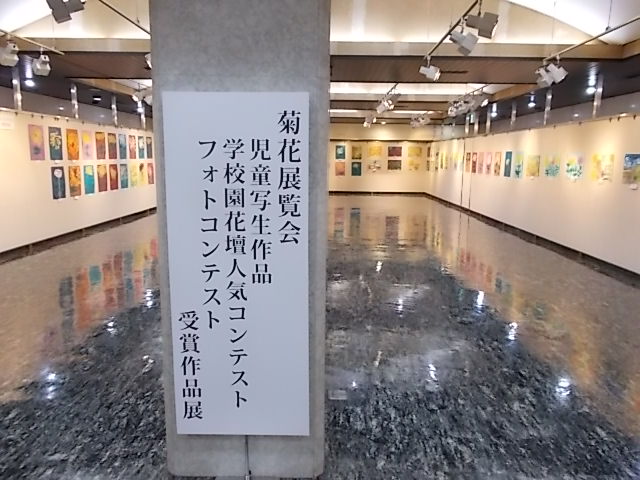 菊花展覧会
児童写生作品
学校園花壇人気コンテスト
フォトコンテスト
受賞作品展